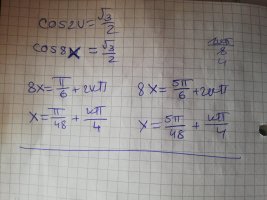 cos2u=√3/2
cos8x = √3/2
2kπ/8
4
8x=π/6+2kπ 8x=5π/6+2kπ
x=π/48+kπ/4 x=5π/48+kπ/4